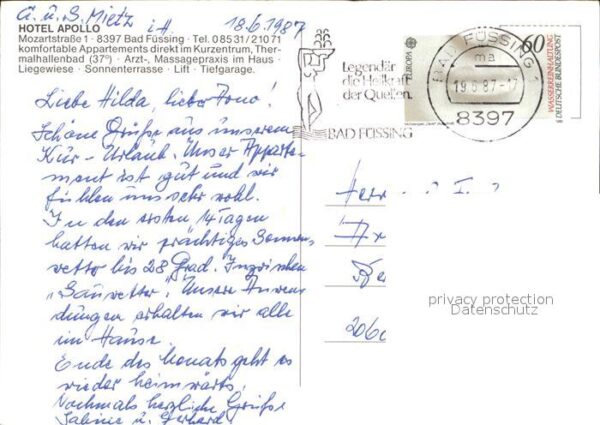 A. u. S. Mietz i H 18.6.1987
HOTEL APOLLO
Mozartstraße 1 · 8397 Bad Füssing · Tel. 0 85 31 / 2 10 71
komfortable Appartements direkt im Kurzentrum, Ther-
malhallenbad (37°) · Arzt-, Massagepraxis im Haus ·
Liegewiese · Sonnenterrasse · Lift · Tiefgarage.
Liebe Hilda, lieber Arno!
Schöne Grüße aus unserem
Kur-Urlaub. Unser Apparte-
ment ist gut und wir
fühlen uns sehr wohl.
In den ersten 14 Tagen
hatten wir prächtiges Sonnen-
wetter bis 28 Grad. Inzwischen
"Sauwetter". Unsere Anwen-
dungen erhalten wir alle
im Hause.
Ende des Monats geht es
wieder heimwärts.
Nochmals herzliche Grüße
Sabine u. Gerhard
Legendär
die Heilkraft
der Quellen.
BAD FÜSSING
BAD FÜSSING 1
ma
19.6.87-17
8397
EUROPA
60
WASSERREINHALTUNG
DEUTSCHE BUNDESPOST
Herr
206
privacy protection
Datenschutz